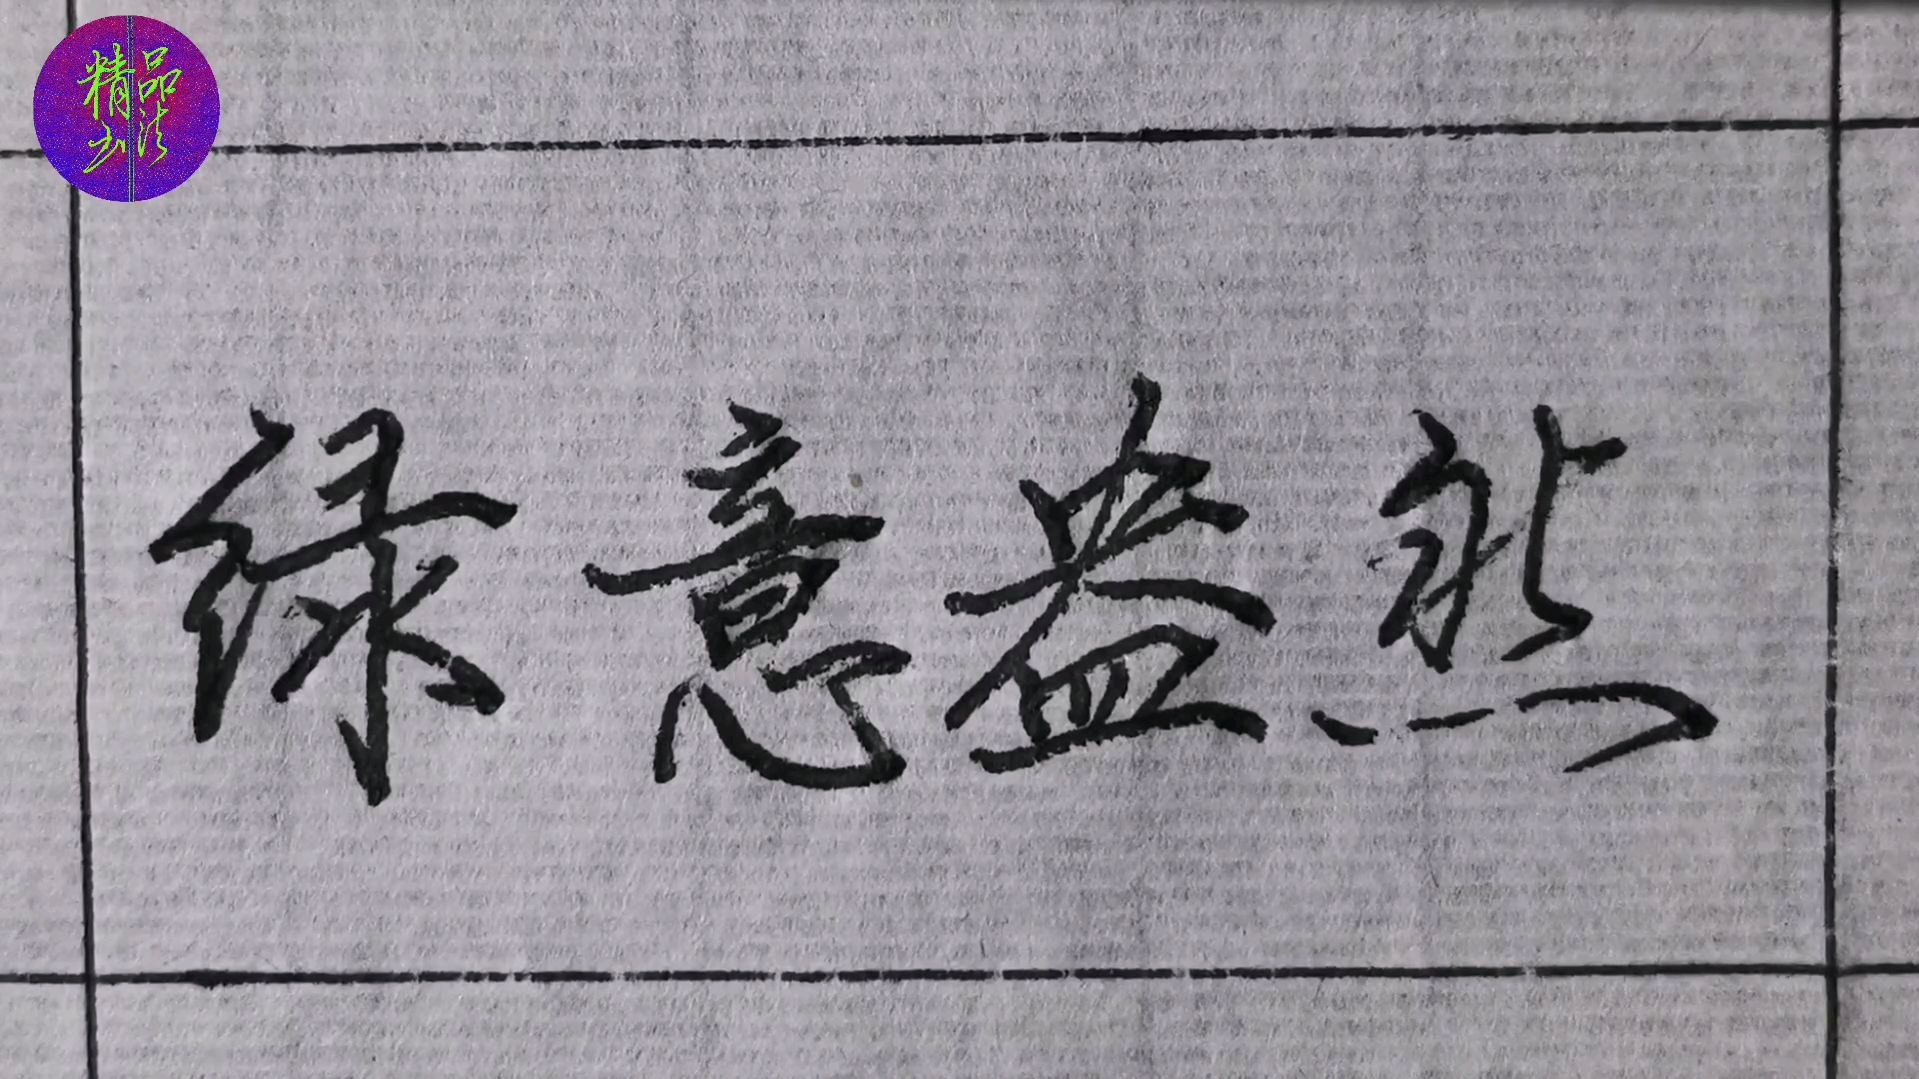 精品
书法
绿意盎然